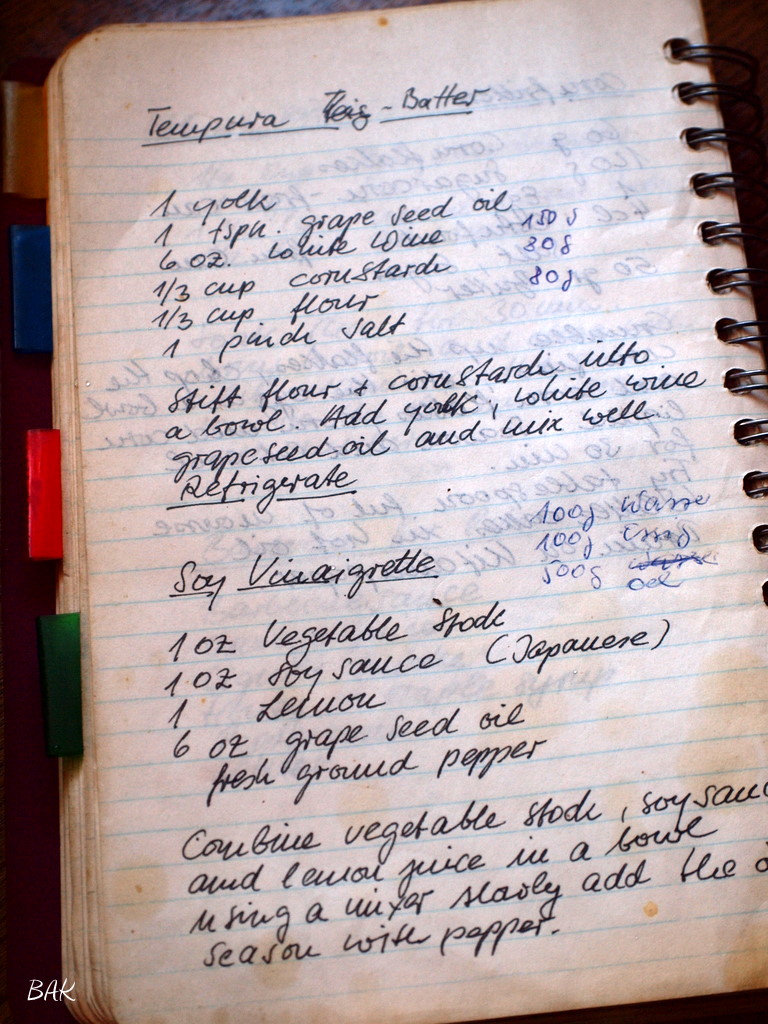 Tempura Teig - Batter
1 yolk
1 tspn. grape seed oil
6 oz. white wine 150g
1/3 cup cornstarch 80g
1/3 cup flour 80g
1 pinch salt
Stift flour + cornstarch into
a bowl. Add yolk, white wine
grapeseed oil and mix well.
Refrigerate
100g Wasser
100g Essig
500g Wasser
Oel
Soy Vinaigrette
1 oz Vegetable Stock
1 oz Soy sauce (Japanese)
1 Lemon
6 oz grape seed oil
fresh ground pepper
Combine vegetable stock, soy sauc
and lemon juice in a bowl
using a mixer slowly add the o
season with pepper.
BAK